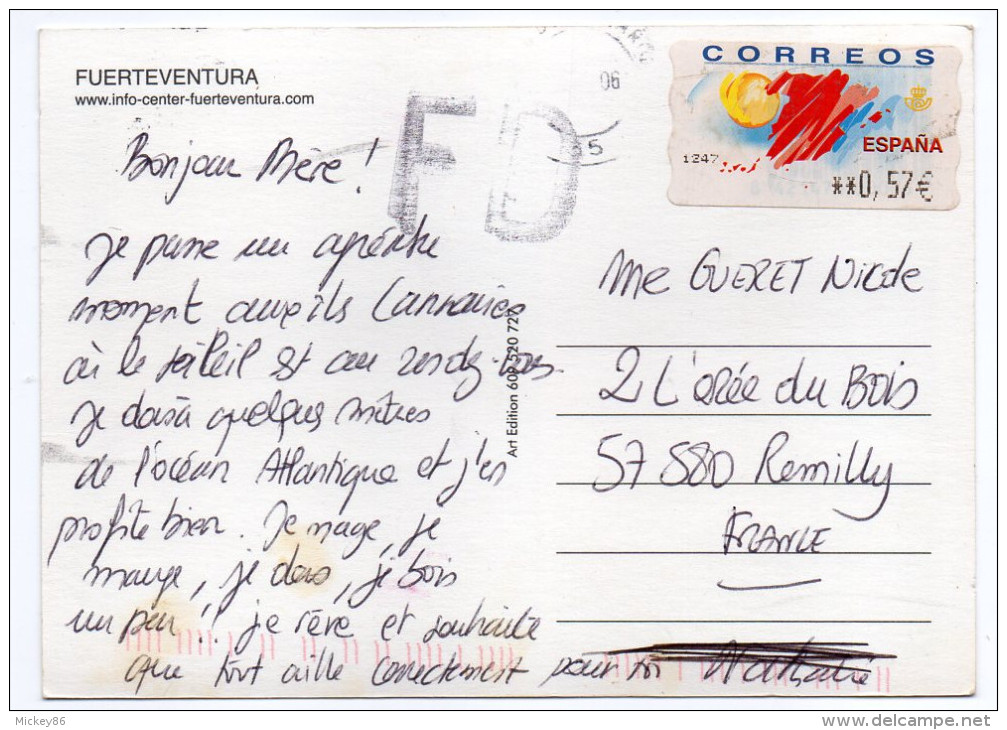 FUERTEVENTURA
www.info-center-fuerteventura.com
Bonjour Mère !
Je passe un agréable
moment aux îls Cannaries
où le soleil est au rendez-vous.
Je dors à quelques mètres
de l'océan Atlantique et j'en
profite bien. Je nage, je
mange, je dors, je bois
un peu !! je rêve et souhaite
que tout aille correctement pour toi
Nathalie
Art Edition 609 520 727
FD
06
5
CORREOS
ESPAÑA
1247
**0,57€
Me GUERET Nicole
2 L'orée du Bois
57 580 Remilly
FRANCE
Mickey86
www.delcampe.net